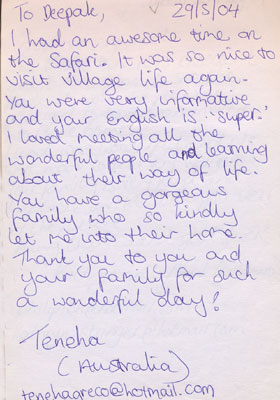 To Deepak, 29/5/04
I had an awesome time on
the Safari. It was so nice to
visit village life again.
You were very informative
and your English is 'super.'
I loved meeting all the
wonderful people and learning
about their way of life.
You have a gorgeous
family who so kindly
let me into their home.
Thank you to you and
your family for such
a wonderful day!
Teneha
(Australia)
tenehagreco@hotmail.com